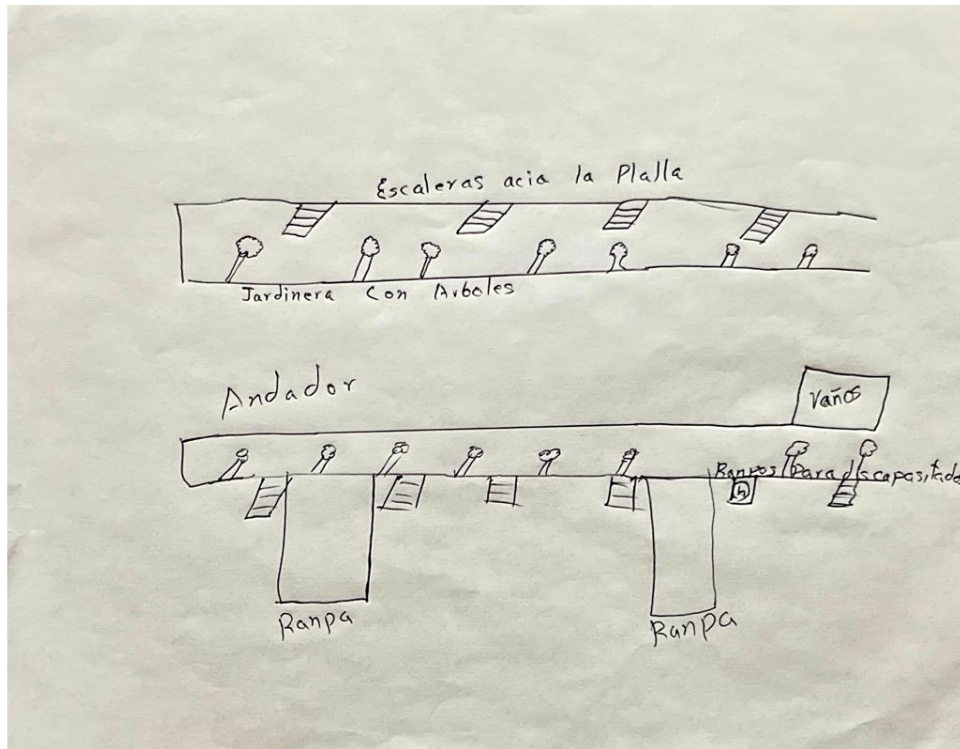 Escaleras acia la Plalla
Jardinera Con Arboles
Andador
Vaños
Ranpas Para discapasitado
Ranpa
Ranpa